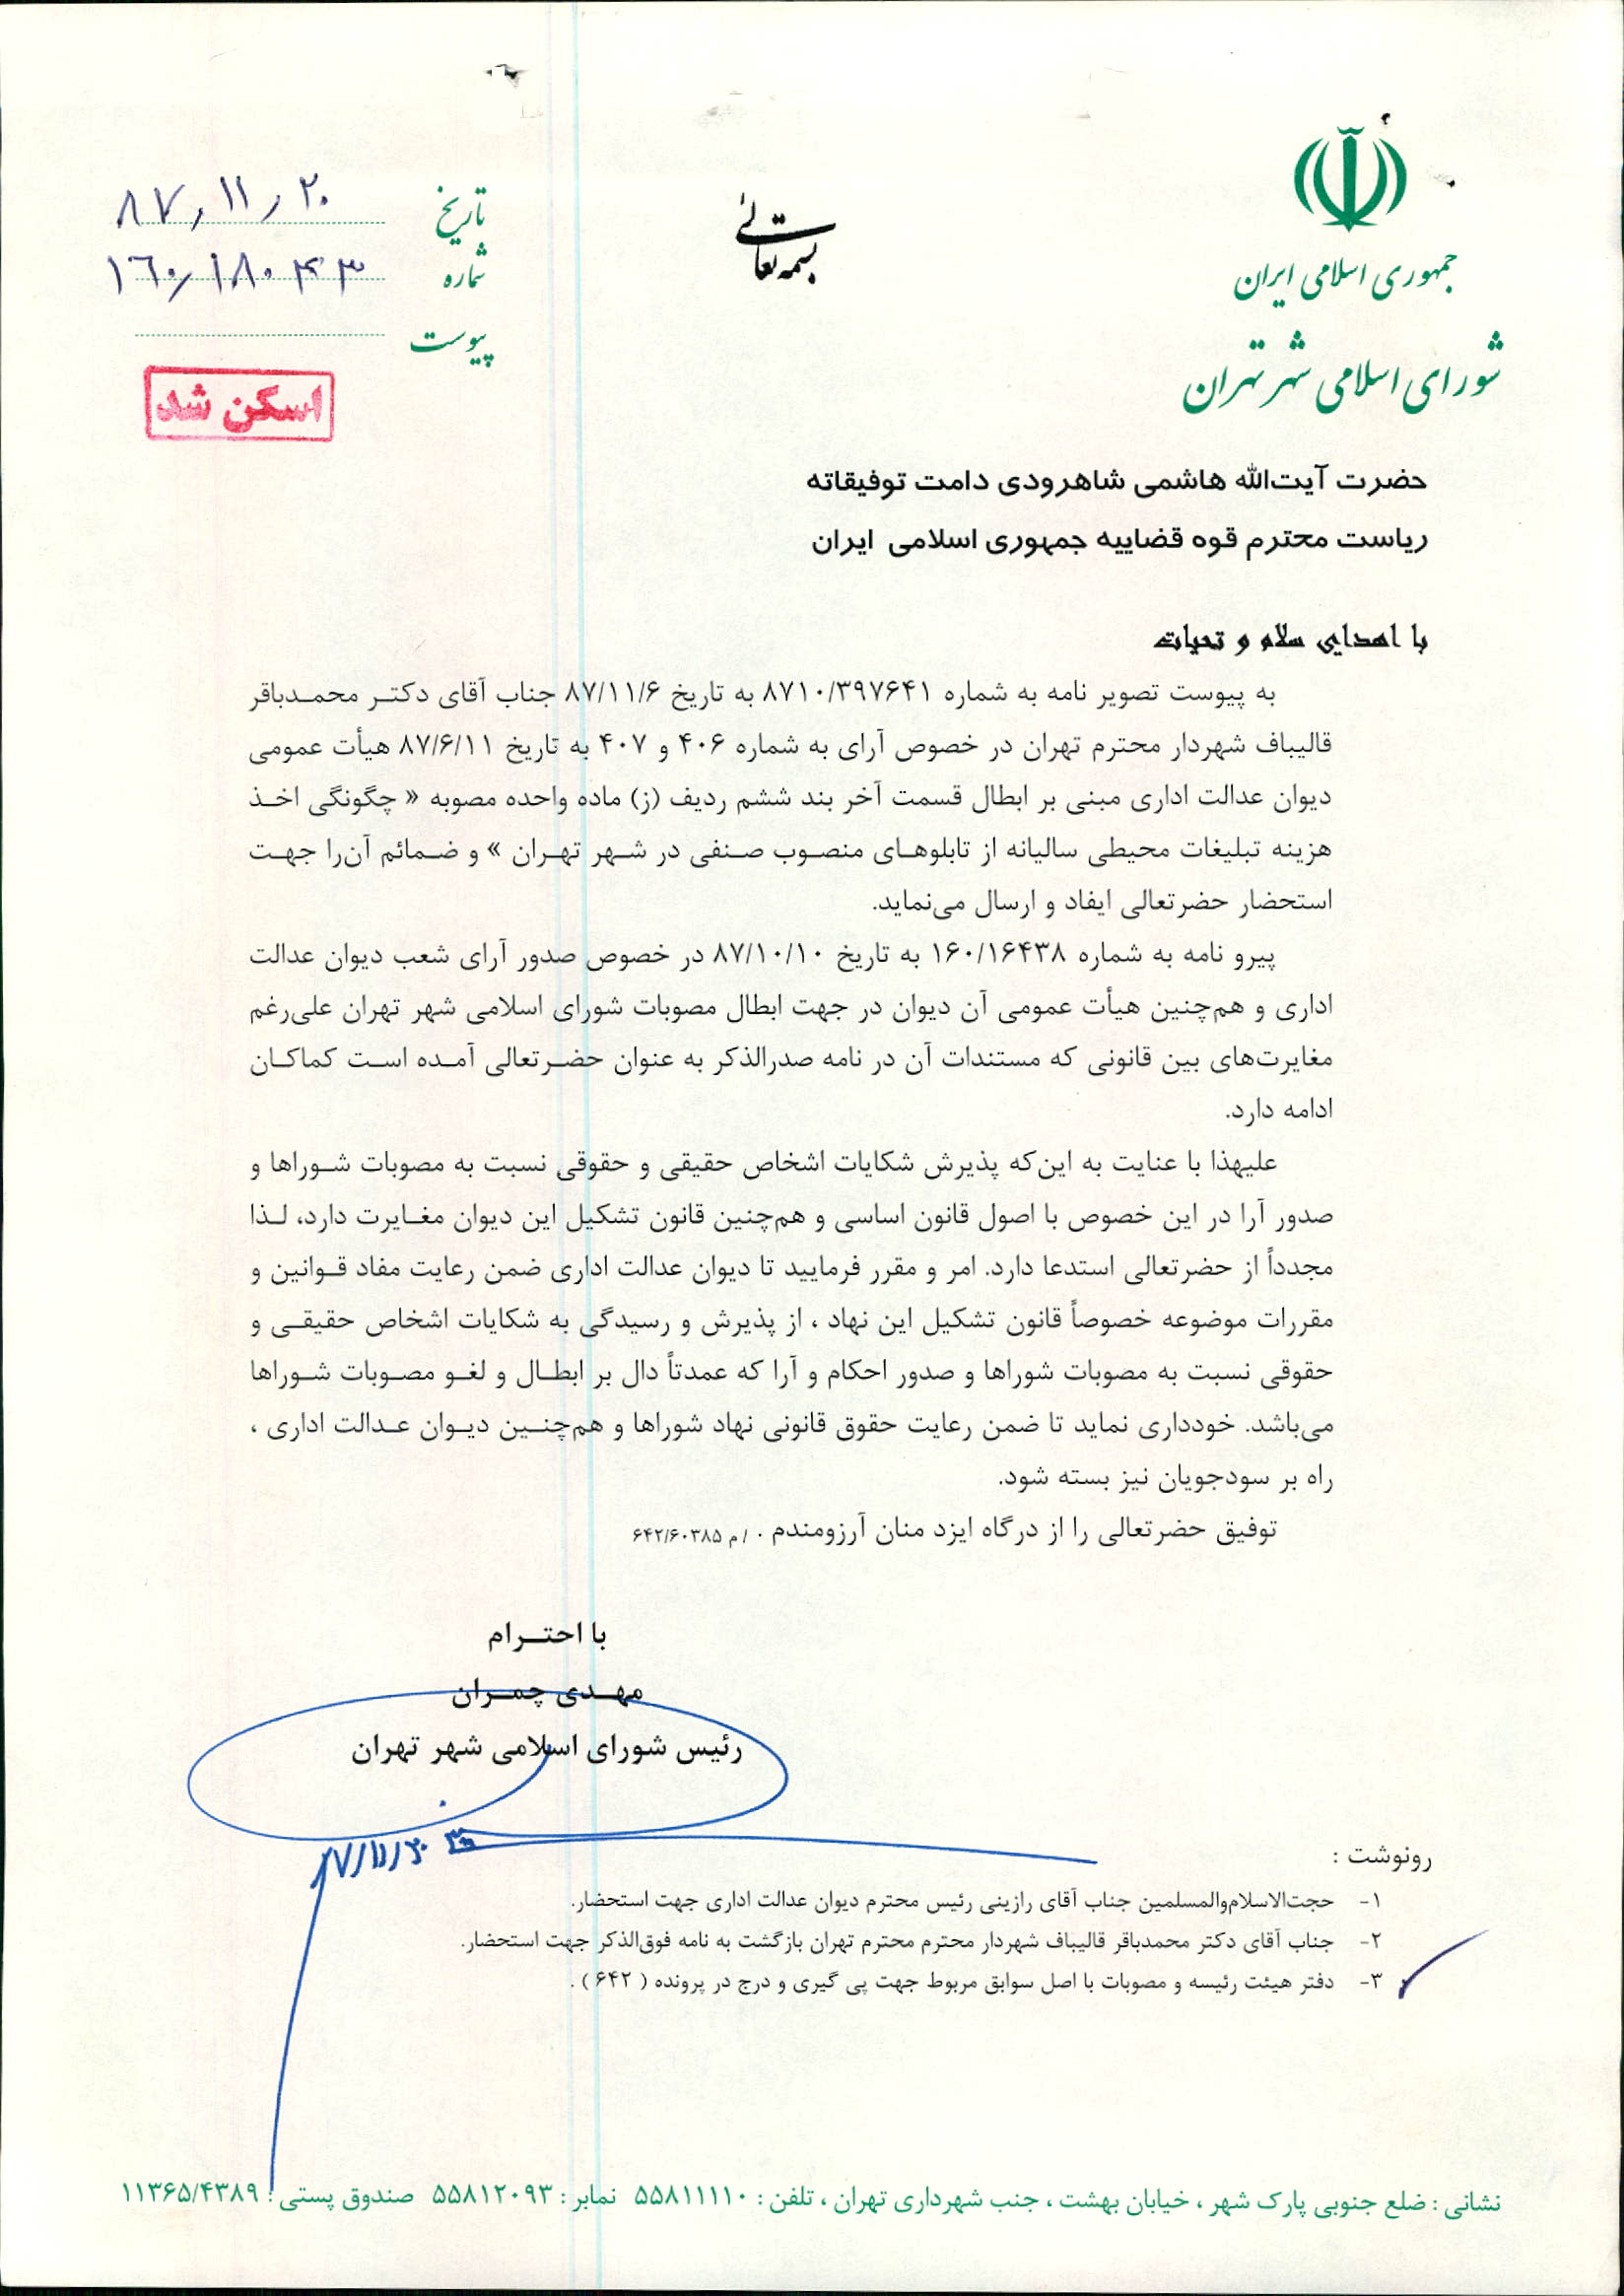 جمهوری اسلامی ایران
شورای اسلامی شهر تهران
بسمه تعالی
تاریخ ۸۷/۱۱/۲۰
شماره ۱۶۰/۱۸۰۴۳
پیوست
اسکن شد
حضرت آیت‌الله هاشمی شاهرودی دامت توفیقاته
ریاست محترم قوه قضاییه جمهوری اسلامی ایران
با اهدای سلام و تحیات
به پیوست تصویر نامه به شماره ۸۷۱۰/۳۹۷۶۴۱ به تاریخ ۸۷/۱۱/۶ جناب آقای دکتر محمدباقر
قالیباف شهردار محترم تهران در خصوص آرای به شماره ۴۰۶ و ۴۰۷ به تاریخ ۸۷/۶/۱۱ هیأت عمومی
دیوان عدالت اداری مبنی بر ابطال قسمت آخر بند ششم ردیف (ز) ماده واحده مصوبه « چگونگی اخذ
هزینه تبلیغات محیطی سالیانه از تابلوهای منصوب صنفی در شهر تهران » و ضمائم آن‌را جهت
استحضار حضرتعالی ایفاد و ارسال می‌نماید.
پیرو نامه به شماره ۱۶۰/۱۶۴۳۸ به تاریخ ۸۷/۱۰/۱۰ در خصوص صدور آرای شعب دیوان عدالت
اداری و هم‌چنین هیأت عمومی آن دیوان در جهت ابطال مصوبات شورای اسلامی شهر تهران علی‌رغم
مغایرت‌های بین قانونی که مستندات آن در نامه صدرالذکر به عنوان حضرتعالی آمده است کماکان
ادامه دارد.
علیهذا با عنایت به این‌که پذیرش شکایات اشخاص حقیقی و حقوقی نسبت به مصوبات شوراها و
صدور آرا در این خصوص با اصول قانون اساسی و هم‌چنین قانون تشکیل این دیوان مغایرت دارد، لذا
مجدداً از حضرتعالی استدعا دارد. امر و مقرر فرمایید تا دیوان عدالت اداری ضمن رعایت مفاد قوانین و
مقررات موضوعه خصوصاً قانون تشکیل این نهاد ، از پذیرش و رسیدگی به شکایات اشخاص حقیقی و
حقوقی نسبت به مصوبات شوراها و صدور احکام و آرا که عمدتاً دال بر ابطال و لغو مصوبات شوراها
می‌باشد. خودداری نماید تا ضمن رعایت حقوق قانونی نهاد شوراها و هم‌چنین دیوان عدالت اداری ،
راه بر سودجویان نیز بسته شود.
توفیق حضرتعالی را از درگاه ایزد منان آرزومندم . / م ۶۴۲/۶۰۳۸۵
با احترام
مهدی چمران
رئیس شورای اسلامی شهر تهران
۸۷/۱۱/۲۰
رونوشت :
۱- حجت‌الاسلام‌والمسلمین جناب آقای رازینی رئیس محترم دیوان عدالت اداری جهت استحضار.
۲- جناب آقای دکتر محمدباقر قالیباف شهردار محترم محترم تهران بازگشت به نامه فوق‌الذکر جهت استحضار.
۳- دفتر هیئت رئیسه و مصوبات با اصل سوابق مربوط جهت پی گیری و درج در پرونده ( ۶۴۲ ) .
نشانی : ضلع جنوبی پارک شهر ، خیابان بهشت ، جنب شهرداری تهران ، تلفن : ۵۵۸۱۱۱۱۰ نمابر : ۵۵۸۱۲۰۹۳ صندوق پستی : ۱۱۳۶۵/۴۳۸۹